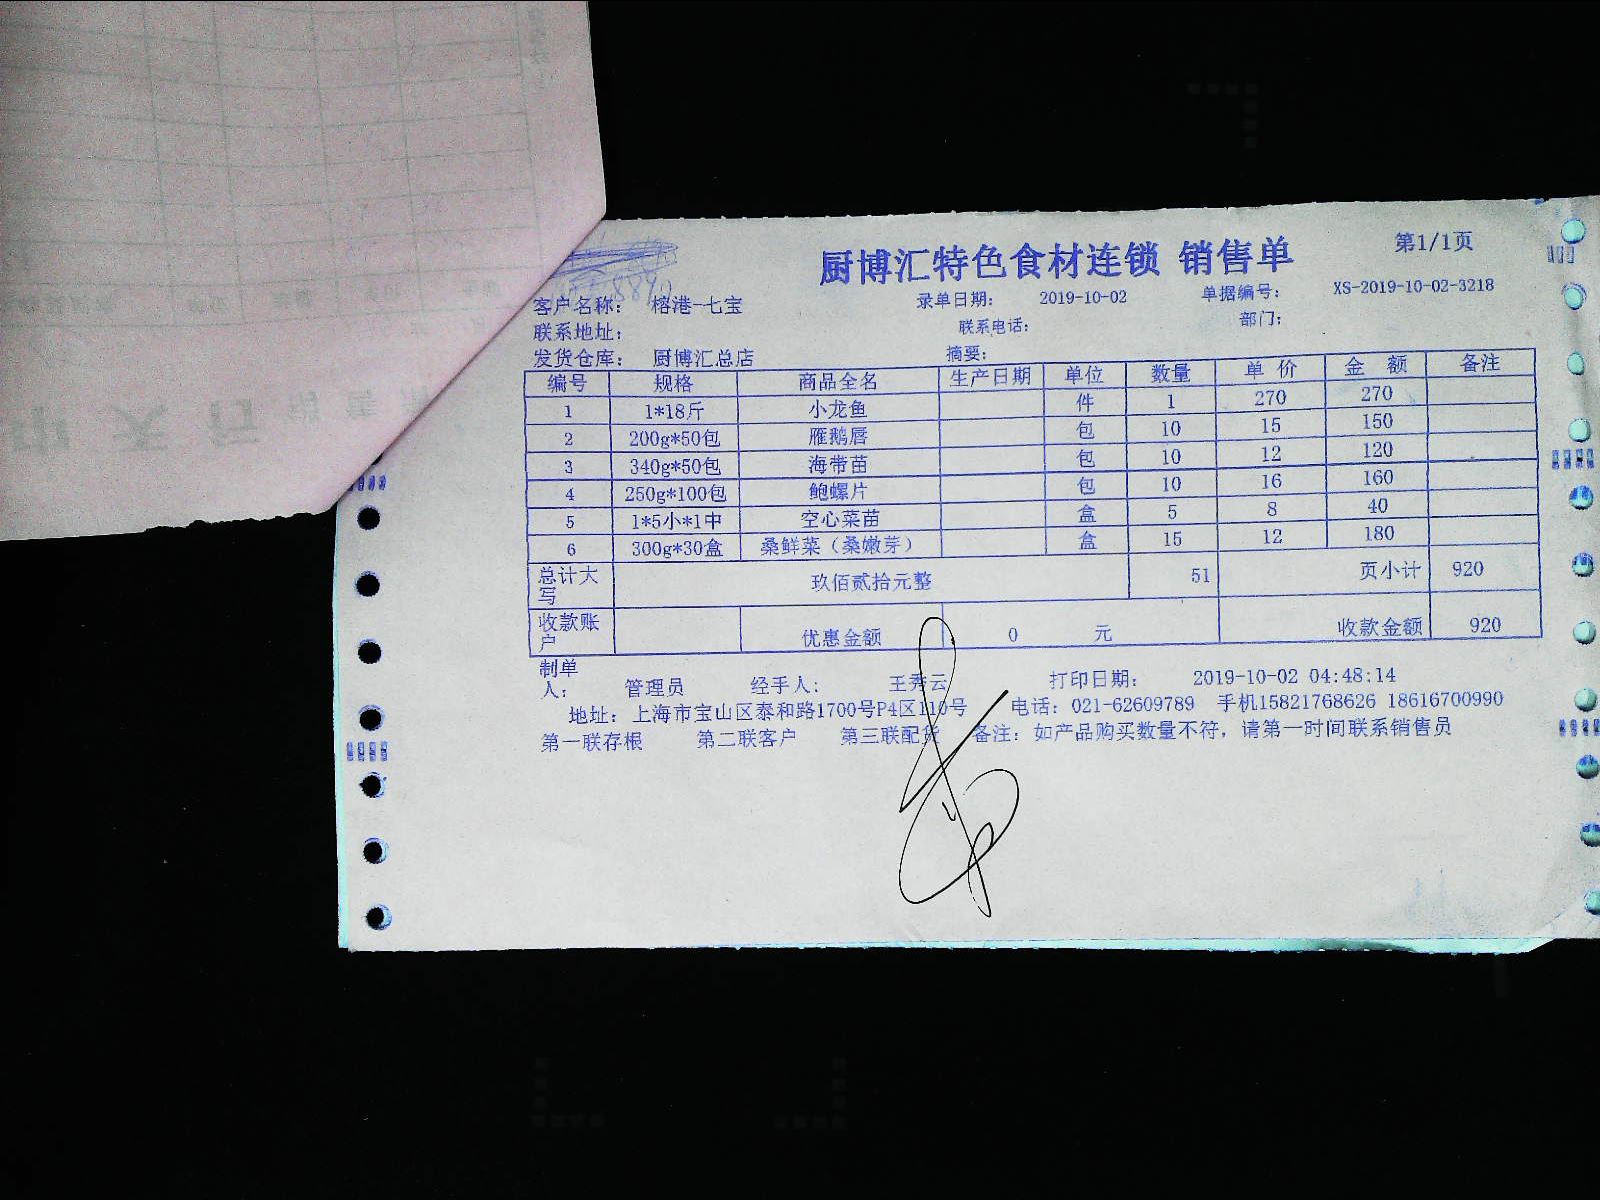 厨博汇特色食材连锁 销售单 第1/1页
客户名称： 榕港-七宝 录单日期： 2019-10-02 单据编号： XS-2019-10-02-3218
联系地址： 联系电话： 部门：
发货仓库： 厨博汇总店 摘要：
编号 规格 商品全名 生产日期 单位 数量 单 价 金 额 备注
1 1*18斤 小龙鱼 件 1 270 270
2 200g*50包 雁鹅唇 包 10 15 150
3 340g*50包 海带苗 包 10 12 120
4 250g*100包 鲍螺片 包 10 16 160
5 1*5小*1中 空心菜苗 盒 5 8 40
6 300g*30盒 桑鲜菜（桑嫩芽） 盒 15 12 180
总计大写 玖佰贰拾元整 51 页小计 920
收款账户 优惠金额 0 元 收款金额 920
制单人： 管理员 经手人： 王秀云 打印日期： 2019-10-02 04:48:14
地址：上海市宝山区泰和路1700号P4区110号 电话：021-62609789 手机15821768626 18616700990
第一联存根 第二联客户 第三联配货 备注：如产品购买数量不符，请第一时间联系销售员